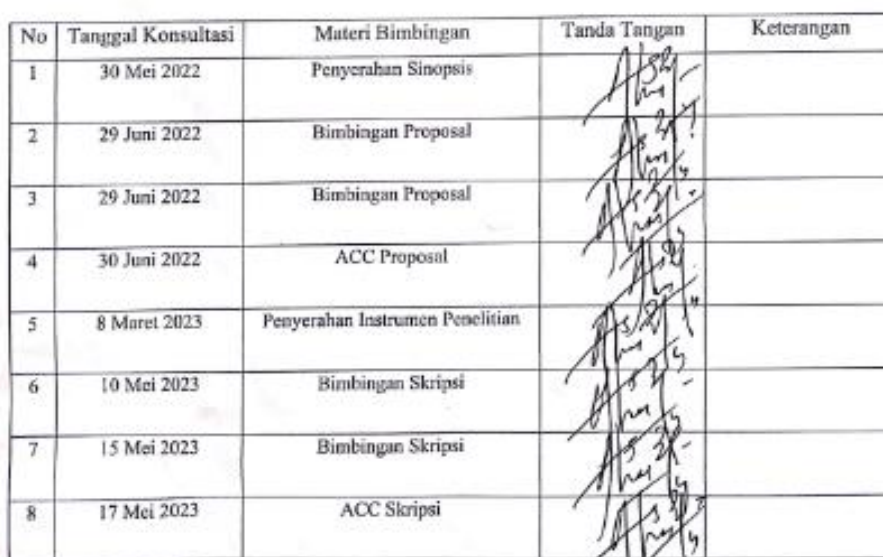 No Tanggal Konsultasi Materi Bimbingan Tanda Tangan Keterangan
1 30 Mei 2022 Penyerahan Sinopsis
2 29 Juni 2022 Bimbingan Proposal
3 29 Juni 2022 Bimbingan Proposal
4 30 Juni 2022 ACC Proposal
5 8 Maret 2023 Penyerahan Instrumen Penelitian
6 10 Mei 2023 Bimbingan Skripsi
7 15 Mei 2023 Bimbingan Skripsi
8 17 Mei 2023 ACC Skripsi